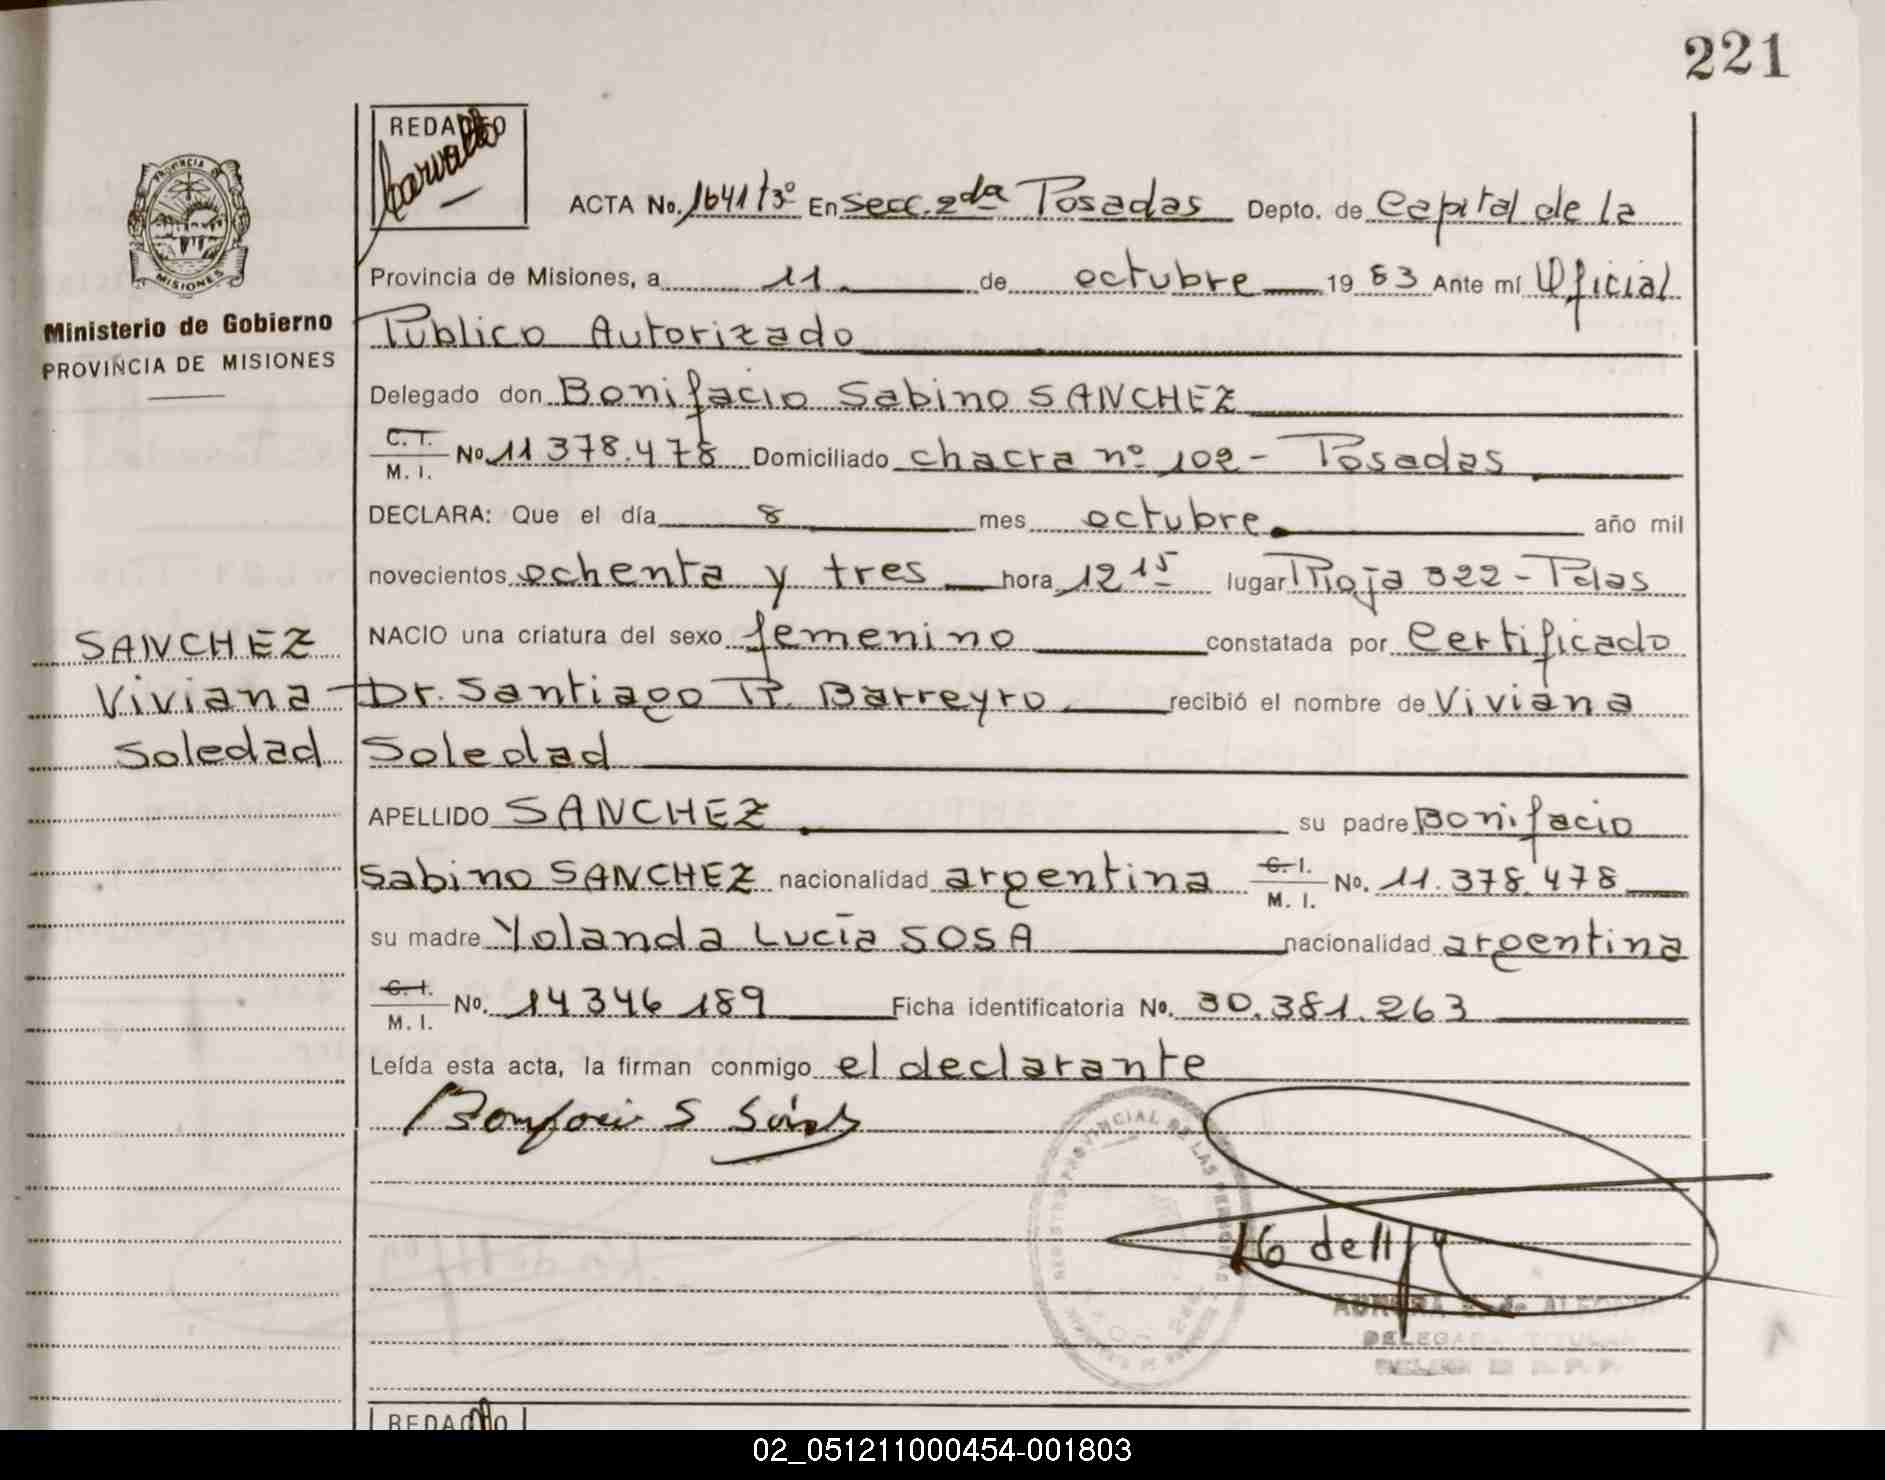 221
REDACTO
Carvallo
ACTA No. 1641 t3º En Secc. 2da Posadas Depto. de Capital de la
PROVINCIA DE
MISIONES
Provincia de Misiones, a 11 de octubre 1983 Ante mí Oficial
Ministerio de Gobierno
PROVINCIA DE MISIONES
Público Autorizado
Delegado don Bonifacio Sabino SANCHEZ
C. I. M. I. No 11 378.478 Domiciliado chacra nº 102 - Posadas
DECLARA: Que el día 8 mes octubre año mil
novecientos ochenta y tres hora 12 15 lugar Rioja 322 - Pdas
SANCHEZ
NACIO una criatura del sexo femenino constatada por Certificado
Viviana
Dr. Santiago R. Barreyro recibió el nombre de Viviana
Soledad
Soledad
APELLIDO SANCHEZ su padre Bonifacio
Sabino SANCHEZ nacionalidad argentina C. I. M. I. No. 11.378.478
su madre Yolanda Lucía SOSA nacionalidad argentina
C. I. M. I. No. 14 346 189 Ficha identificatoria No. 30.381.263
Leída esta acta, la firman conmigo el declarante
REGISTRO PROVINCIAL DE LAS PERSONAS
DELEGADA TITULAR
REDACTO
02_051211000454-001803